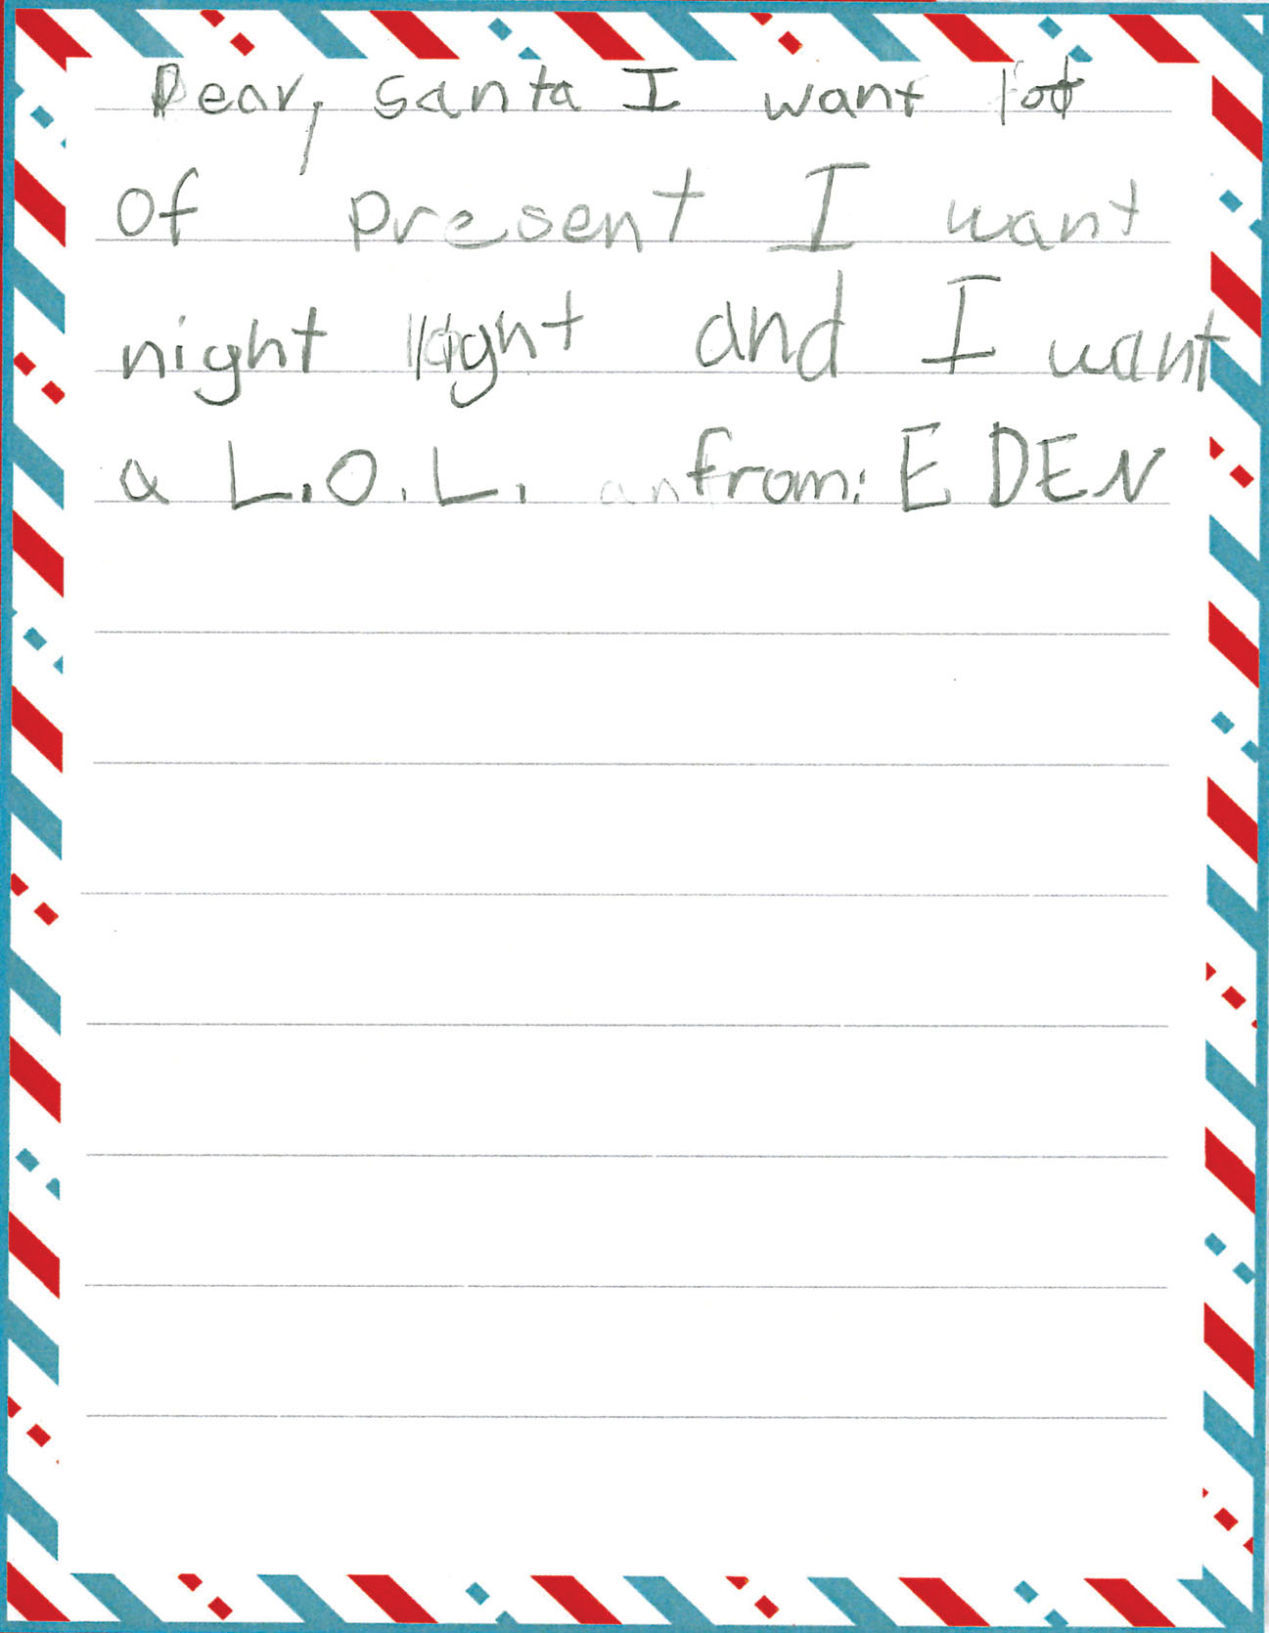 Dear, Santa I want lot
of present I want
night light and I want
a L.O.L. from: EDEN